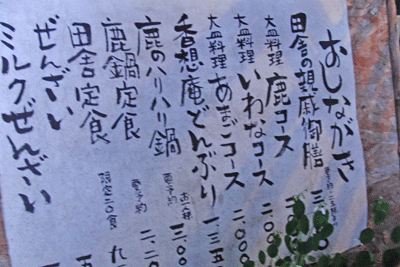 おしながき
田舎の親戚御膳 要予約・二名様より 三、
大皿料理 鹿コース 二、〇〇
大皿料理 いわなコース 二、〇〇
大皿料理 あまごコース 二、〇〇〇
香想庵どんぶり 一、三五
鹿のハリハリ鍋 要予約 三、〇〇
鹿鍋定食 要予約 二、二〇
田舎定食 限定二〇食 九
ぜんざい 五
ミルクぜんざい